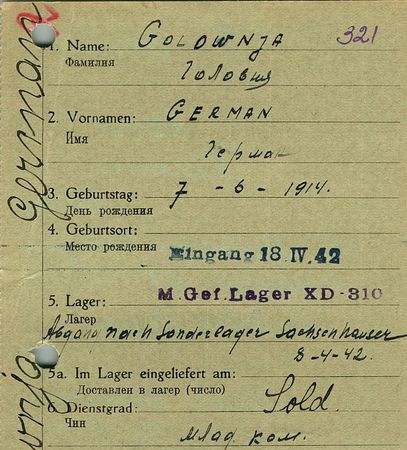 2
1. Name: GOLOWNJA 321
Фамилия Головня
2. Vornamen: GERMAN
Имя Герман
3. Geburtstag: 7 - 6 - 1914.
День рождения
4. Geburtsort:
Место рождения
Eingang 18. IV. 42
5. Lager: M. Gef. Lager XD-310
Лагер
Abgang nach Sonderlager Sachsenhausen
8-4-42.
5a. Im Lager eingeliefert am:
Доставлен в лагер (число)
6. Dienstgrad: Sold.
Чин
Млад. ком.
German